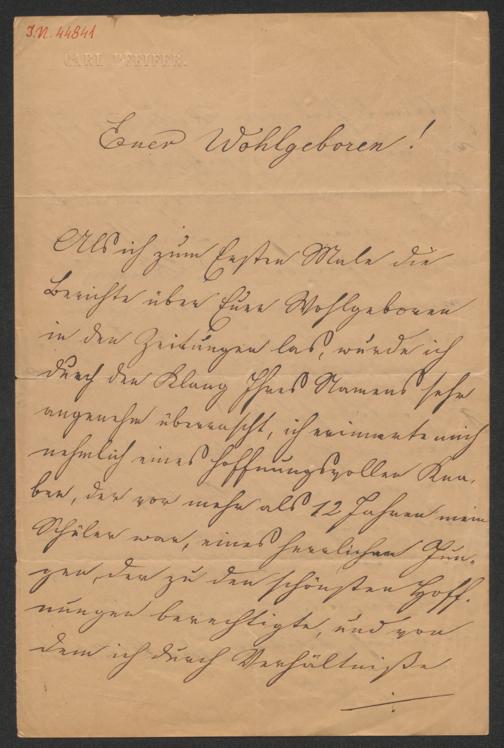 I.N. 44841
CARL PFEIFER.
Euer Wohlgeboren!
Als ich zum Ersten Male die
Berichte über Euer Wohlgeboren
in den Zeitungen las, wurde ich
durch den Klang Ihres Namens sehr
angenehm überrascht, ich erinnerte mich
nehmlich eines hoffnungsvollen Kna-
ben, der vor mehr als 12 Jahren mein
Schüler war, eines herrlichen Jun-
gen, der zu den schönsten Hoff-
nungen berechtigte, und von
dem ich durch Verhältniße